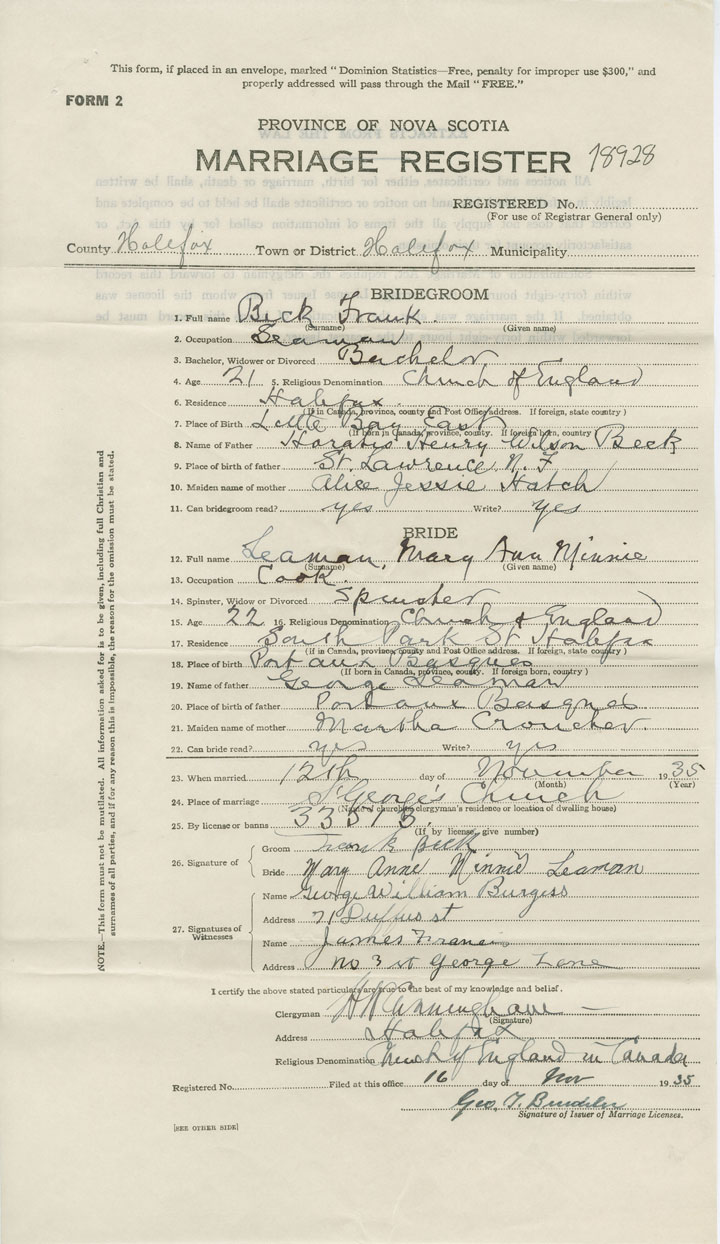 This form, if placed in an envelope, marked "Dominion Statistics—Free, penalty for improper use $300," and
properly addressed will pass through the Mail "FREE."
FORM 2
PROVINCE OF NOVA SCOTIA
MARRIAGE REGISTER 18928
REGISTERED No.
(For use of Registrar General only)
County Halifax Town or District Halifax Municipality
BRIDEGROOM
1. Full name Beck Frank
(Surname) (Given name)
2. Occupation Seaman
3. Bachelor, Widower or Divorced Bachelor
4. Age 21 5. Religious Denomination Church of England
6. Residence Halifax
(If in Canada, province, county and Post Office address. If foreign, state country)
7. Place of Birth Little Bay East
(If born in Canada, province, county. If foreign born, country)
8. Name of Father Horatio Henry Wilson Beck
9. Place of birth of father St. Lawrence N. F
10. Maiden name of mother Alice Jessie Hatch
11. Can bridegroom read? yes Write? yes
BRIDE
12. Full name Leaman, Mary Ann Minnie
(Surname) (Given name)
13. Occupation Cook
14. Spinster, Widow or Divorced Spinster
15. Age 22 16. Religious Denomination Church of England
17. Residence South Park St Halifax
(if in Canada, province, county and Post Office address. If foreign, state country)
18. Place of birth Port aux Basques
(If born in Canada, province, county. If foreign born, country)
19. Name of father George Leaman
20. Place of birth of father Port aux Basques
21. Maiden name of mother Martha Croucher
22. Can bride read? yes Write? yes
23. When married 12th day of November 1935
(Month) (Year)
24. Place of marriage St George's Church
(Name of church or clergyman's residence or location of dwelling house)
25. By license or banns
(If by license, give number)
26. Signature of
Groom Frank Beck
Bride Mary Anne Minnie Leaman
27. Signatures of Witnesses
Name George William Burgess
Address 71 Duffus st
Name James Francis
Address no 3 st George Lane
I certify the above stated particulars are true to the best of my knowledge and belief.
Clergyman H W Cunningham
(Signature)
Address Halifax
Religious Denomination Church of England in Canada
Registered No. Filed at this office 16 day of Nov 1935
Geo. T.
Signature of Issuer of Marriage Licenses.
[SEE OTHER SIDE]
NOTE.—This form must not be mutilated. All information asked for is to be given, including full Christian and
surnames of all parties, and if for any reason this is impossible, the reason for the omission must be stated.